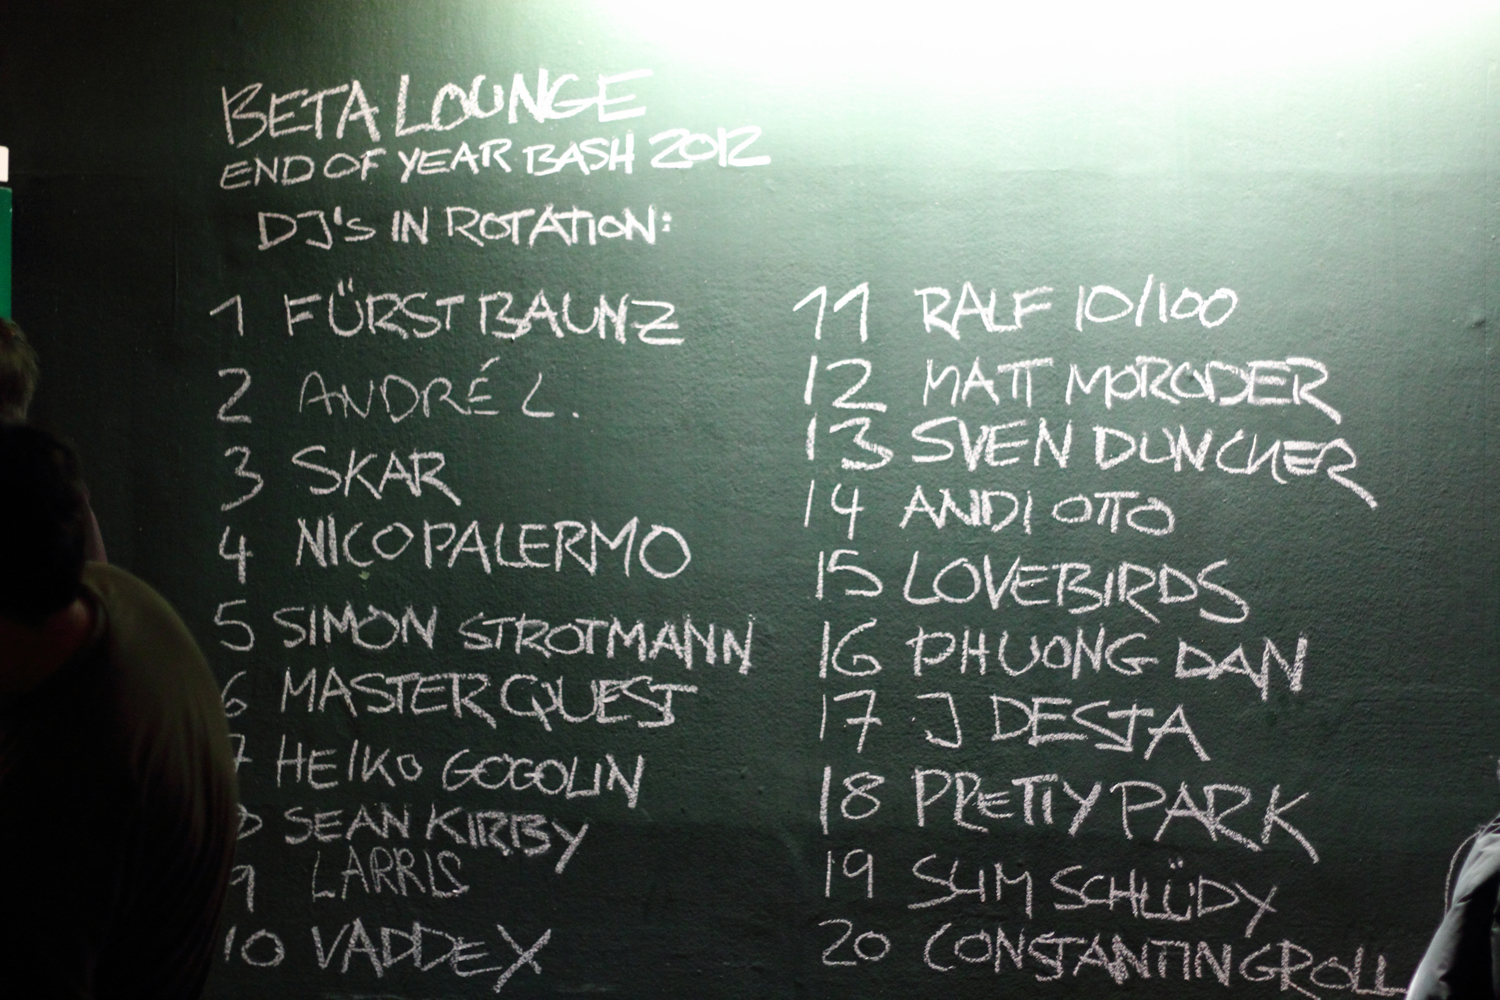 BETA LOUNGE
END OF YEAR BASH 2012
DJ'S IN ROTATION:
1 FÜRST BAUNZ
2 ANDRÉ L.
3 SKAR
4 NICO PALERMO
5 SIMON STROTMANN
6 MASTER QUEST
7 HEIKO GOGOLIN
8 SEAN KIRBY
9 LARRIS
10 VADDEX
11 RALF 10/100
12 MATT MORODER
13 SVEN DUNCKER
14 ANDI OTTO
15 LOVEBIRDS
16 PHUONG DAN
17 J DESTA
18 PRETTY PARK
19 SLIM SCHLÜDY
20 CONSTANTIN GROLL